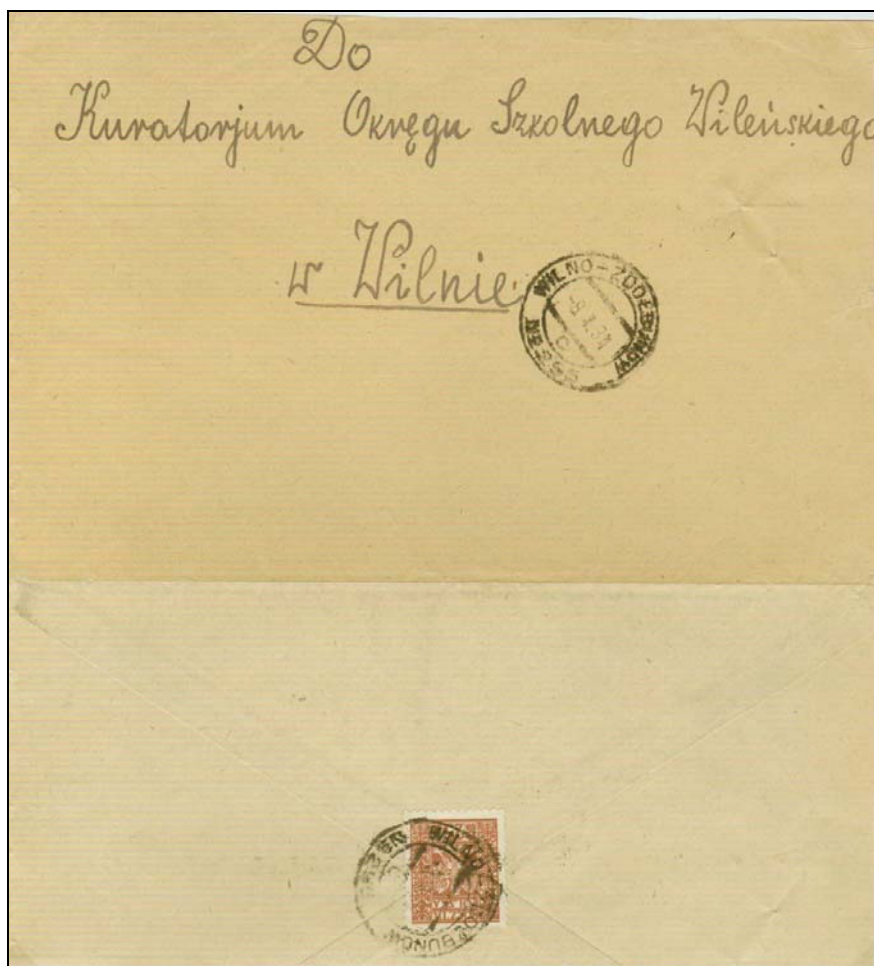 Do
Kuratorjum Okręgu Szkolnego Wileńskiego
w Wilnie
WILNO-ZDOŁBUNÓW
C
WILNO